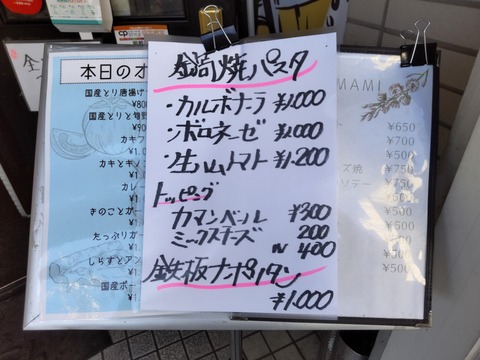 鍋焼パスタ
・カルボナーラ ¥1,000
・ボロネーゼ ¥1,000
・生ハムトマト ¥1,200
トッピング
カマンベール ¥300
ミックスチーズ 200
W 400
鉄板ナポリタン
¥1,000
本日のオ
国産とり唐揚げ
国産とりと旬野
カキフ
カキとキノ
カレ
きのことガー
たっぷりガー
しらすとアン
国産ポー
MAMI
¥650
¥700
¥500
ズ焼 ¥750
ソテー ¥750
¥500
¥500
¥500
¥500